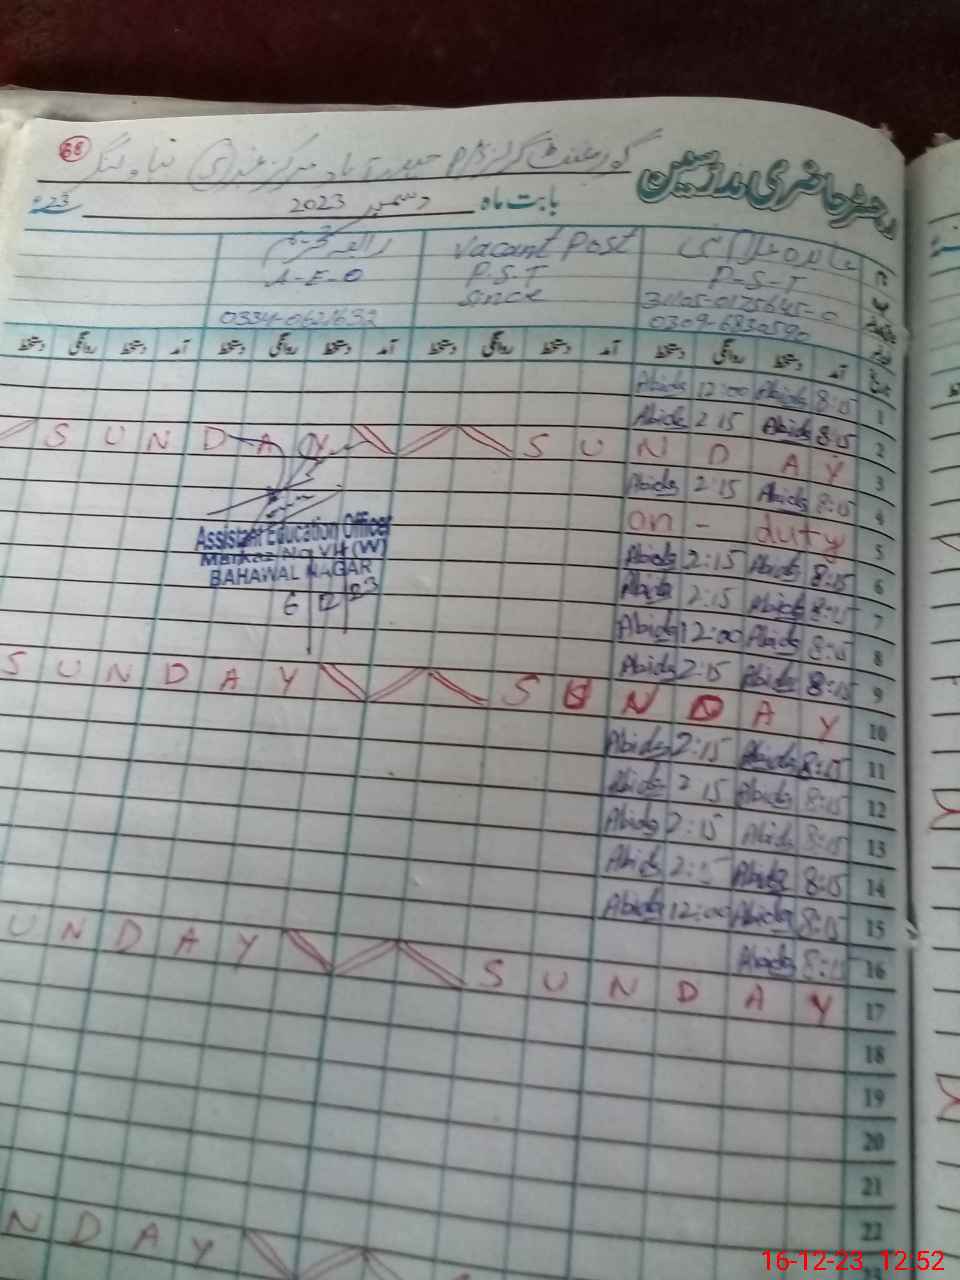 68
گورنمنٹ گرلز P/S
رجسٹر حاضری مدرسین
بابت ماہ دسمبر 2023 23ء
P-S-T Vacant Post رابعہ کریم
31105-0125645-0 P.S.T A-E-O
0309-6830590 Since 0334-0621632
آمد دستخط روانگی دستخط آمد دستخط روانگی دستخط آمد دستخط روانگی دستخط
1 8:15 Abida 12:00 Abida
2 8:15 Abida 2:15 Abida
3 SUNDAY SUNDAY
4 8:15 Abida 2:15 Abida
5 on - duty
6 8:15 Abida 2:15 Abida
7 8:15 Abida 2:15 Abida
8 8:15 Abida 12:00 Abida
9 8:15 Abida 2:15 Abida
10 SUNDAY SUNDAY
11 8:15 Abida 2:15 Abida
12 8:15 Abida 2 15 Abida
13 8:15 Abida 2:15 Abida
14 8:15 Abida 2:15 Abida
15 8:15 Abida 12:00 Abida
16 8:15 Abida
17 SUNDAY UNDAY
18
19
20
21
22
NDAY
Assistant Education Officer
Markaz No VII (W)
BAHAWAL NAGAR
6 12 23
16-12-23 12:52